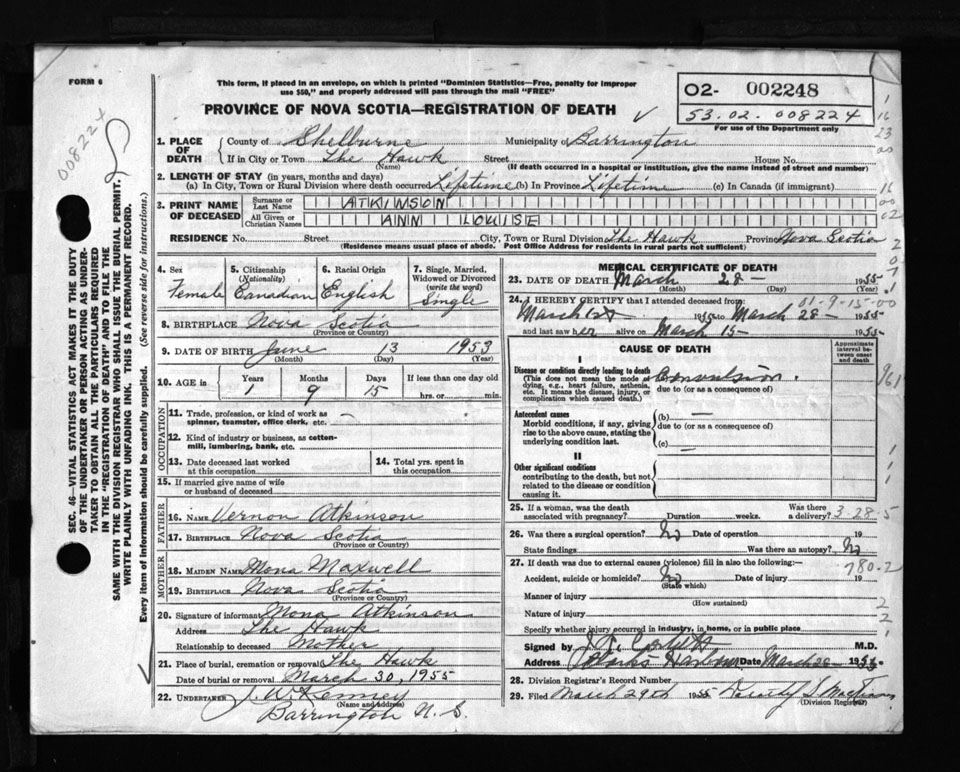 FORM 6
008224
This form, if placed in an envelope, on which is printed "Dominion Statistics—Free, penalty for improper
use $50," and properly addressed will pass through the mail "FREE"
PROVINCE OF NOVA SCOTIA—REGISTRATION OF DEATH
O2- 002248
53.02.008224
For use of the Department only
SEC. 46—VITAL STATISTICS ACT MAKES IT THE DUTY
OF THE UNDERTAKER OR PERSON ACTING AS UNDER-
TAKER TO OBTAIN ALL THE PARTICULARS REQUIRED
IN THE "REGISTRATION OF DEATH" AND TO FILE THE
SAME WITH THE DIVISION REGISTRAR WHO SHALL ISSUE THE BURIAL PERMIT.
WRITE PLAINLY WITH UNFADING INK. THIS IS A PERMANENT RECORD.
Every item of information should be carefully supplied. (See reverse side for instructions.)
1. PLACE OF DEATH
County of Shelburne Municipality of Barrington
If in City or Town The Hawk Street House No.
(Name) (If death occurred in a hospital or institution, give the name instead of street and number)
2. LENGTH OF STAY (in years, months and days)
(a) In City, Town or Rural Division where death occurred Lifetime (b) In Province Lifetime (c) In Canada (if immigrant)
3. PRINT NAME OF DECEASED
Surname or Last Name ATKINSON
All Given or Christian Names ANN LOUISE
RESIDENCE No. Street City, Town or Rural Division The Hawk Province Nova Scotia
(Residence means usual place of abode. Post Office Address for residents in rural parts not sufficient)
4. Sex
Female
5. Citizenship (Nationality)
Canadian
6. Racial Origin
English
7. Single, Married, Widowed or Divorced (write the word)
Single
8. BIRTHPLACE Nova Scotia
(Province or Country)
9. DATE OF BIRTH June 13 1953
(Month) (Day) (Year)
10. AGE in Years Months Days If less than one day old
1 9 15 hrs. or min.
OCCUPATION
11. Trade, profession, or kind of work as
spinner, teamster, office clerk, etc. —
12. Kind of industry or business, as cotton-
mill, lumbering, bank, etc.
13. Date deceased last worked
at this occupation
14. Total yrs. spent in
this occupation
15. If married give name of wife
or husband of deceased
FATHER
16. NAME Vernon Atkinson
17. BIRTHPLACE Nova Scotia
(Province or Country)
MOTHER
18. MAIDEN NAME Mona Maxwell
19. BIRTHPLACE Nova Scotia
(Province or Country)
20. Signature of informant Mona Atkinson
Address The Hawk
Relationship to deceased Mother
21. Place of burial, cremation or removal The Hawk
Date of burial or removal March 30, 1955
22. UNDERTAKER J. W. Kenney
(Name and address)
Barrington N.S.
MEDICAL CERTIFICATE OF DEATH
23. DATE OF DEATH March 28 — 1955
(Month) (Day) (Year)
24. I HEREBY CERTIFY that I attended deceased from: 01-9-15-00
March 1st 1955 to March 28 — 1955
and last saw her alive on March 15 — 1955
CAUSE OF DEATH
Approximate interval be-tween onset and death
I
Disease or condition directly leading to death
(This does not mean the mode of dying, e.g., heart failure, asthenia, etc. It means the disease, injury, or complication which caused death.)
Convulsion.
due to (or as a consequence of)
961
Antecedent causes
Morbid conditions, if any, giving rise to the above cause, stating the underlying condition last.
(b) —
due to (or as a consequence of)
(c) —
II
Other significant conditions
contributing to the death, but not related to the disease or condition causing it.
25. If a woman, was the death
associated with pregnancy? Duration weeks. Was there a delivery? 3-28-5
26. Was there a surgical operation? No Date of operation 19
State findings Was there an autopsy? No
27. If death was due to external causes (violence) fill in also the following:—
780-2
Accident, suicide or homicide? No Date of injury 19
(State which)
Manner of injury
(How sustained)
Nature of injury
Specify whether injury occurred in industry, in home, or in public place
Signed by M.D.
Address Clarks Harbour Date March 28 — 1955
28. Division Registrar's Record Number
29. Filed March 29th 1955
(Division Registrar)